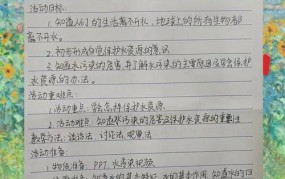 活动目标:
1.知道人们的生活离不开水,地球上的所有生物都
离不开水。
2.初步形成自觉保护水资源的意识
3.知道水污染的危害,并了解水污染的主要原因及学会保护
水资源的办法。
活动重难点:
1.活动重点:学会怎样保护水资源
2.活动难点:知道水污染的危害和保护水资源的重要性
教学方法:谈话法、讨论法、观察法
活动准备:
1.物质准备:PPT、水污染视频